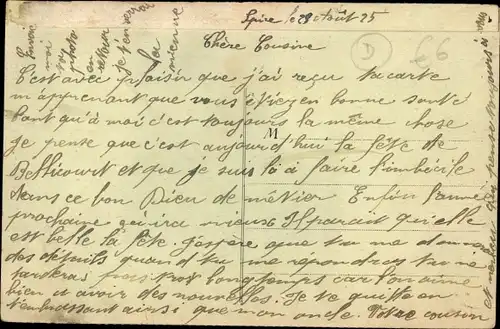 Spire le 28 Août 25
Chère Cousine
C'est avec plaisir que j'ai reçu ta carte
m'apprenant que vous étiez en bonne santé
tant qu'à moi c'est toujours la même chose
je pense que c'est aujourd'hui la fête de
Bellicourt et que je suis là à faire l'imbécile
dans ce bon Dieu de métier Enfin l'année
prochaine ça ira mieux Il parait qu'elle
est belle la fête. J'espère que tu me donneras
des détails quand tu me répondras tu ne
tarderas pas trop longtemps car l'on aime
bien avoir des nouvelles. Je te quitte en
t'embrassant ainsi que mon oncle. Votre cousin
Envoie
moi
ta
photo
en
retour
je t'enverrai
la
mienne
D
€6
M